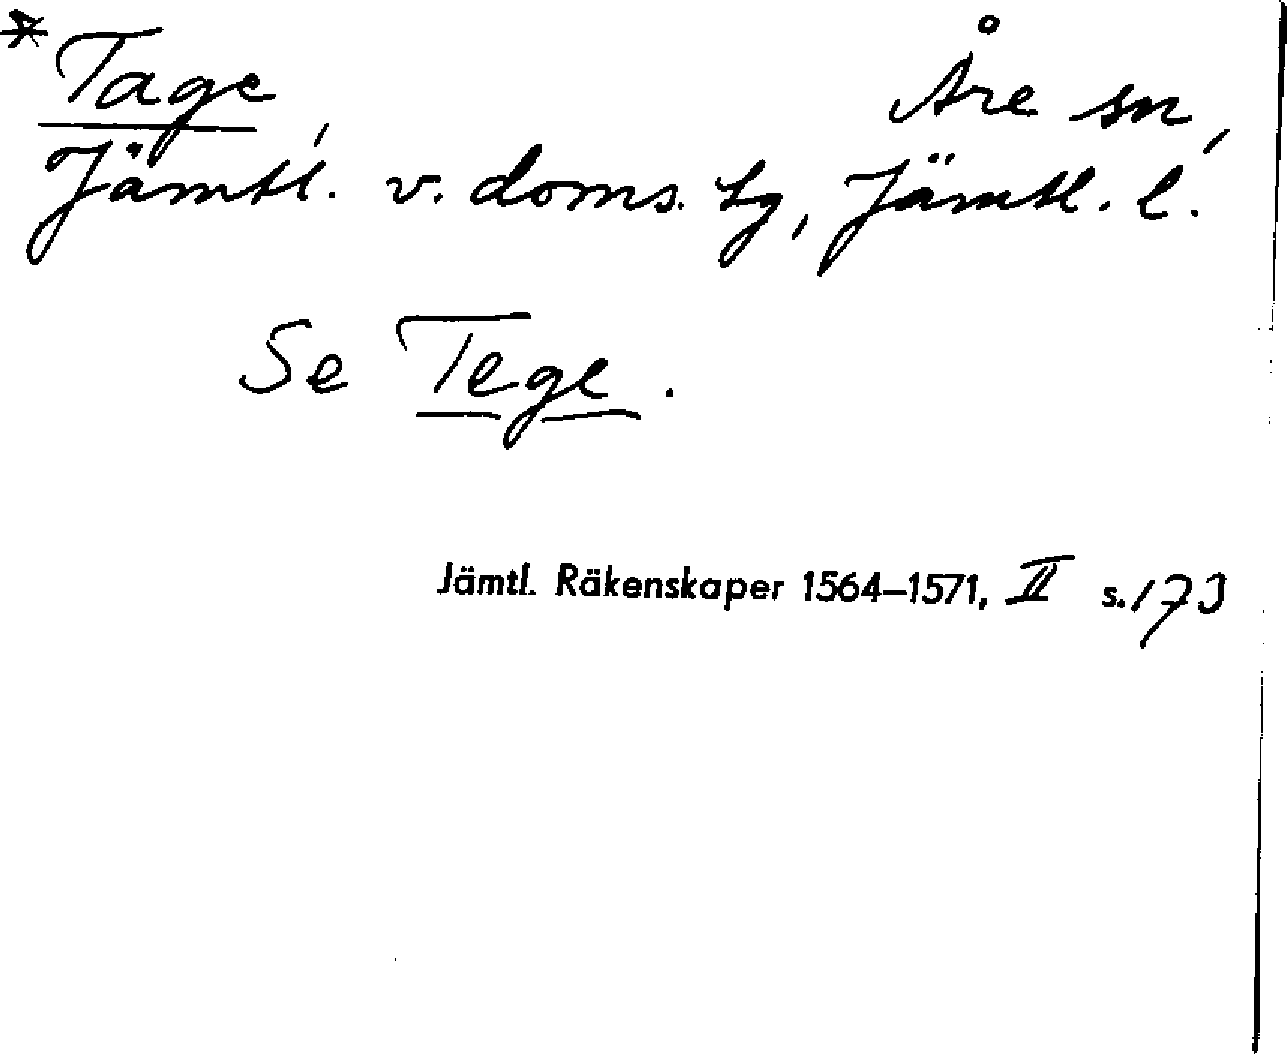 * Tage, Åre sn,
Jämtl. v. doms. tg, Jämtl. l.
Se Tege.
Jämtl. Räkenskaper 1564–1571, II s. 173